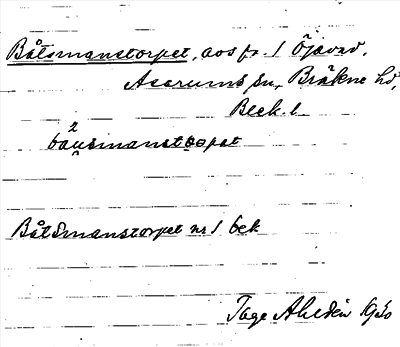 Båtsmanstorpet, avs fr. 1 Öjavad,
Asarums sn, Bräkne hd,
Blek. l.
båu̯smanstorpet
Båtsmanstorpet nr 1 bek
Tage Ahldén 1930